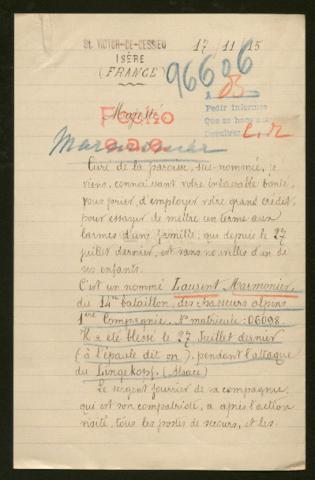 St VICTOR-DE-CESSIEU
ISÈRE
(FRANCE)
17 11 15
96606
Fecho
Pedir informes
Que se haga
Devolver
Majesté
Marmonier
Curé de la paroisse, sus-nommée, je
viens, connaissant votre inlassable bonté
vous prier, d'employer votre grand crédit,
pour essayer de mettre un terme aux
larmes d'une famille, qui depuis le 27
juillet dernier, est sans nouvelles d'un de
ses enfants.
C'est un nommé Laurent Marmonier,
du 14me bataillon, des chasseurs alpins
1ère Compagnie, No matricule: 06098.
Il a été blessé le 27 Juillet dernier
(à l'épaule dit on), pendant l'attaque
du Lingekopf. (Alsace)
Le sergent fourrier de sa compagnie,
qui est son compatriote, a après l'action
visité, tous les postes de secours, et les